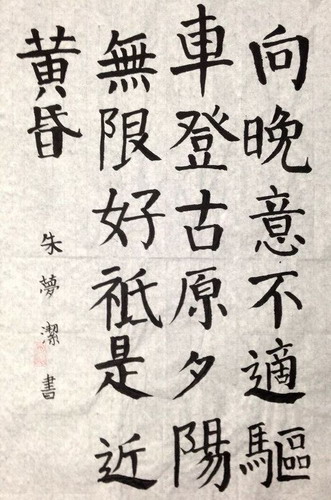 向晚意不適驅
車登古原夕陽
無限好祗是近
黃昏
朱夢潔書